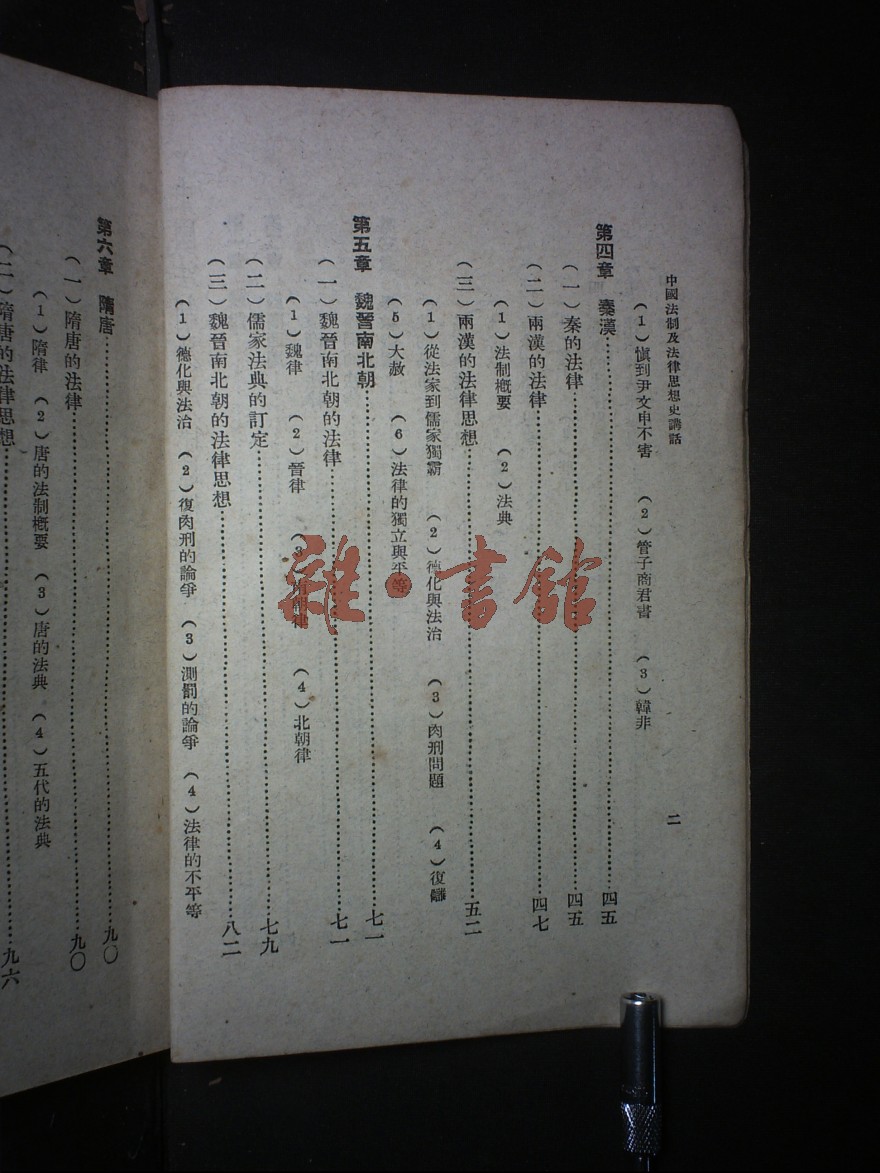 中國法制及法律思想史講話
二
（1）愼到尹文申不害　（2）管子商君書　（3）韓非
第四章　秦漢……四五
（一）秦的法律……四五
（二）兩漢的法律……四七
（1）法制概要　（2）法典
（三）兩漢的法律思想……五二
（1）從法家到儒家獨霸　（2）德化與法治　（3）肉刑問題　（4）復讎
（5）大赦　（6）法律的獨立與平等
第五章　魏晉南北朝……七一
（一）魏晉南北朝的法律……七一
（1）魏律　（2）晉律　（3）南朝律　（4）北朝律
（二）儒家法典的訂定……七九
（三）魏晉南北朝的法律思想……八二
（1）德化與法治　（2）復肉刑的論爭　（3）測罰的論爭　（4）法律的不平等
第六章　隋唐……九〇
（一）隋唐的法律……九〇
（1）隋律　（2）唐的法制概要　（3）唐的法典　（4）五代的法典
（二）隋唐的法律思想……九六
雜·書館